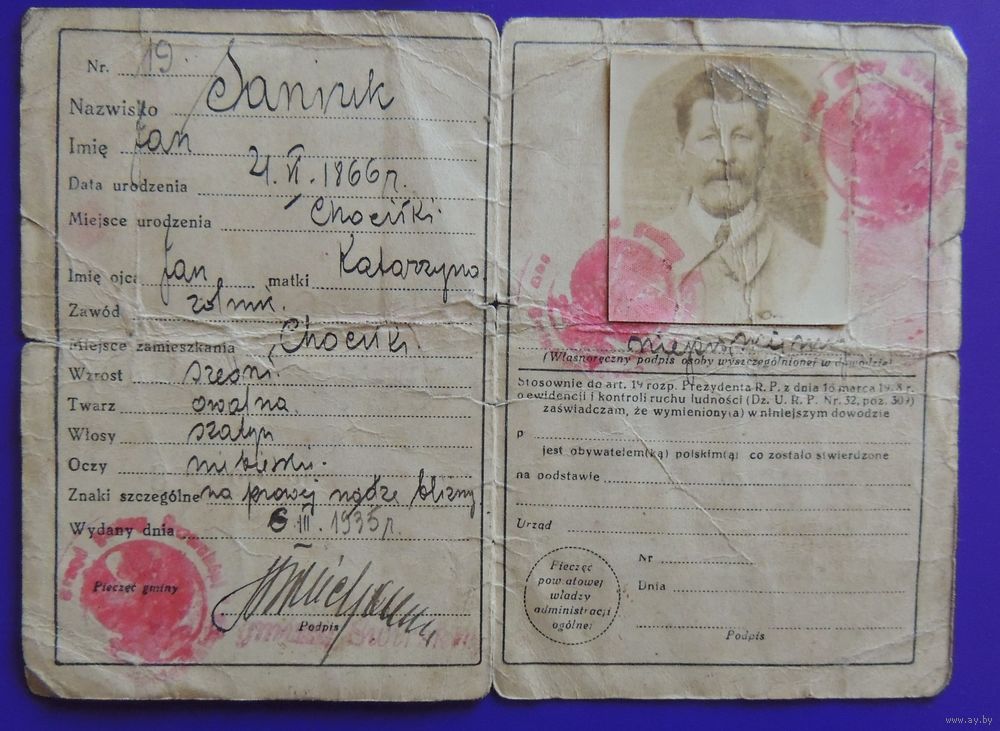 Nr. 19.
Nazwisko
Imię Jan
Data urodzenia 21. VI. 1866 r.
Miejsce urodzenia
Imię ojca Jan matki Katarzyna
Zawód rolnik.
Miejsce zamieszkania
Wzrost średni.
Twarz owalna
Włosy szatyn
Oczy niebieski.
Znaki szczególne na prawej nodze blizny
Wydany dnia 6 III. 1935 r.
Pieczęć gminy
Podpis
niepiśmienny
(Własnoręczny podpis osoby wyszczególnionej w dowodzie)
Stosownie do art. 19 rozp. Prezydenta R. P. z dnia 16 marca 1928 r.
o ewidencji i kontroli ruchu ludności (Dz. U. R. P. Nr. 32, poz. 309)
zaświadczam, że wymieniony(a) w niniejszym dowodzie
p
jest obywatelem(ką) polskim(ą) co zostało stwierdzone
na podstawie
Urząd
Pieczęć
powiatowej
władzy
administracji
ogólnej
Nr
Dnia
Podpis
www.ay.by